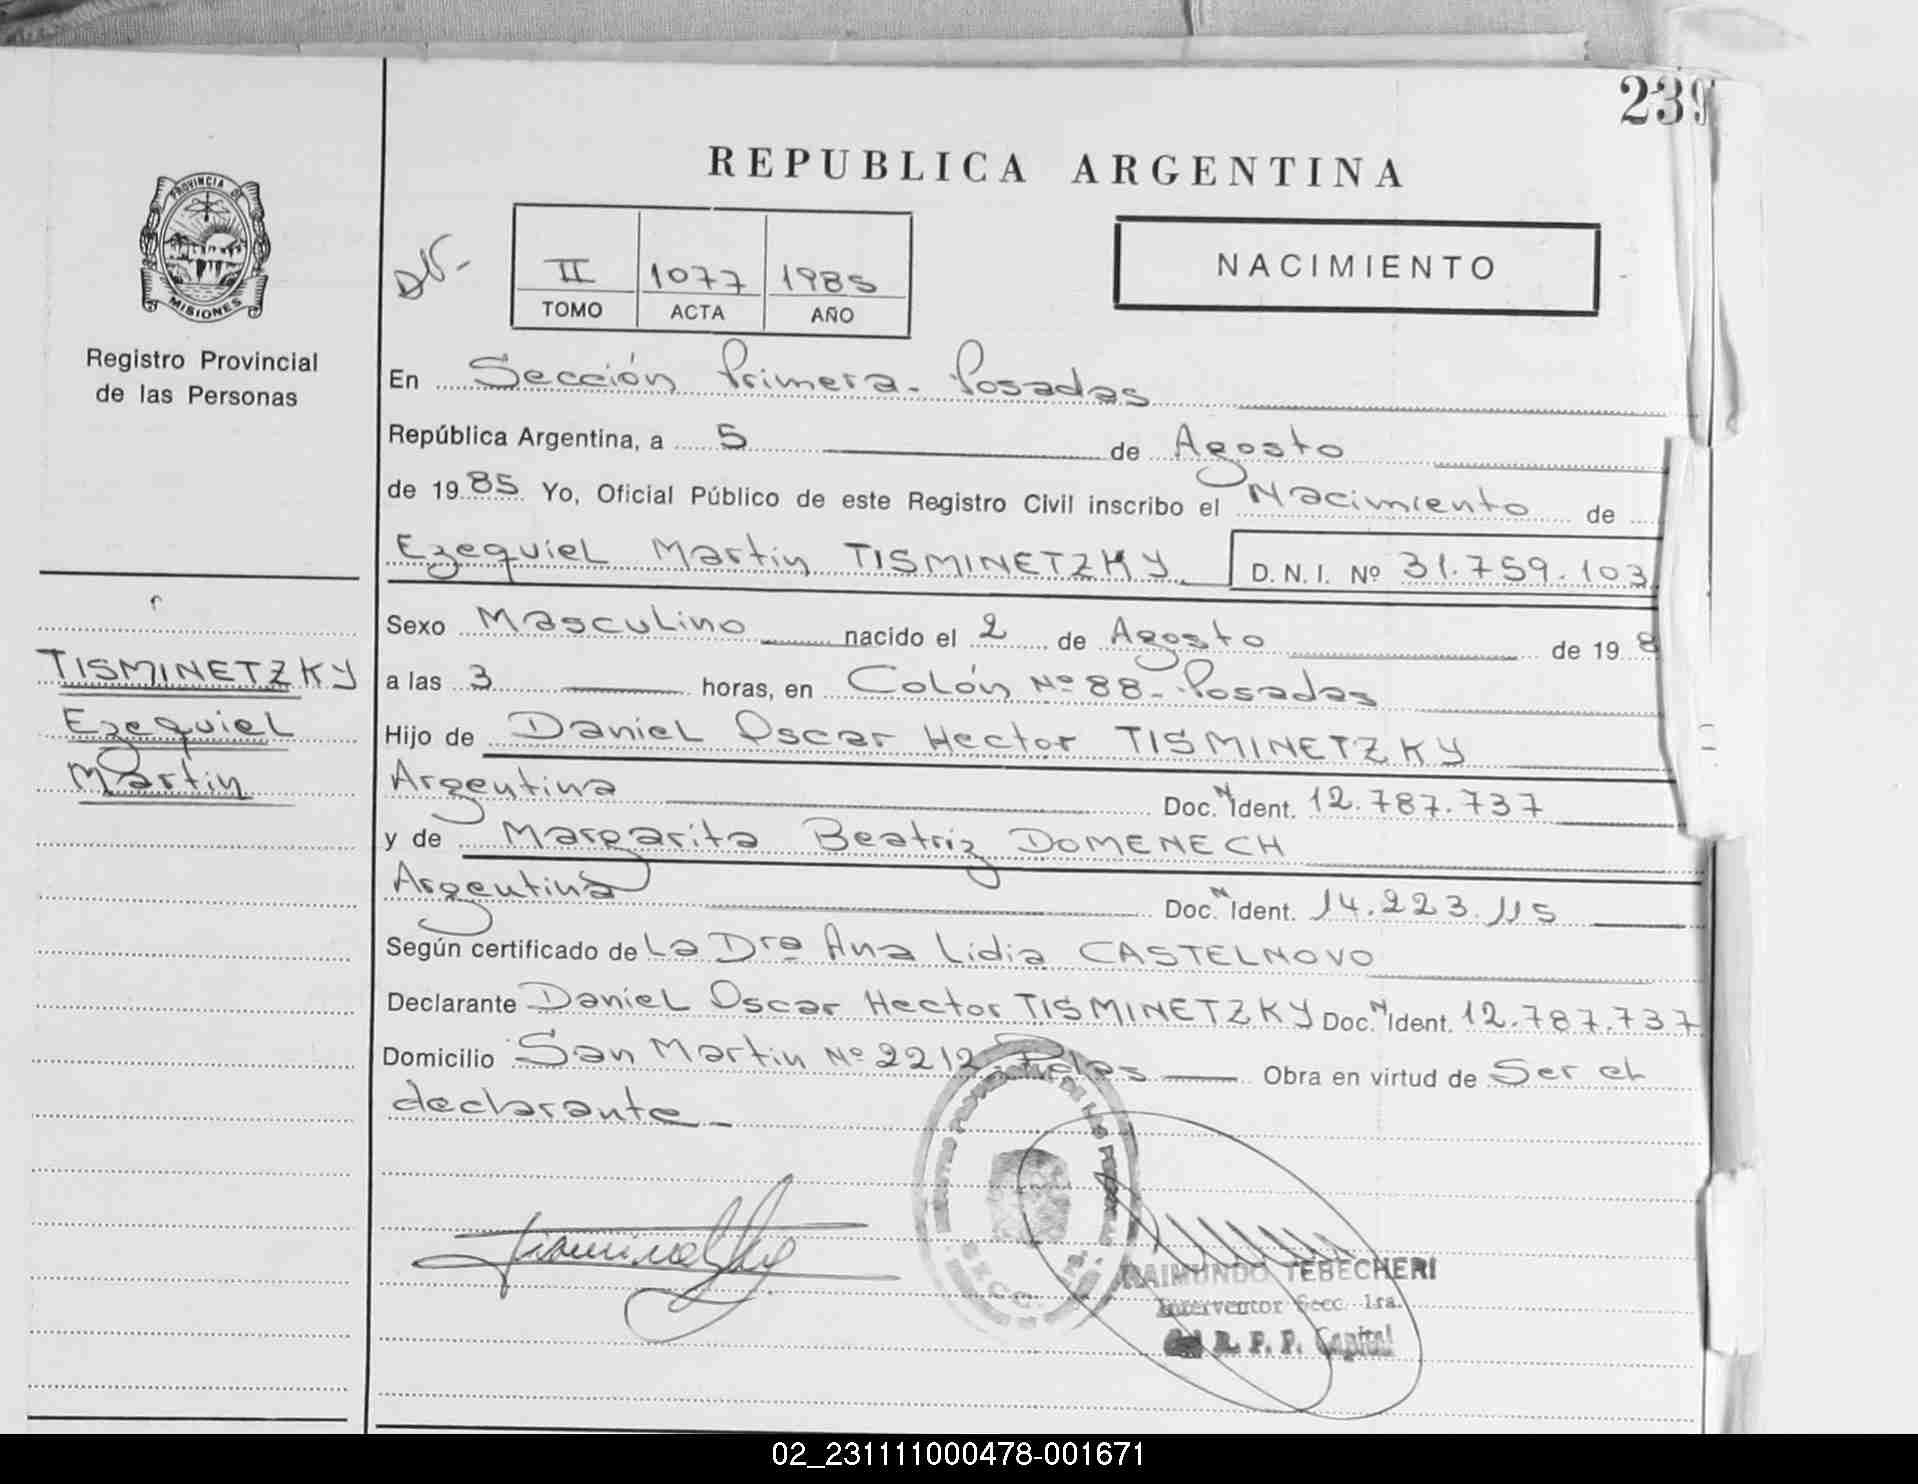 239
REPUBLICA ARGENTINA
PROVINCIA DE
MISIONES
Registro Provincial
de las Personas
II 1077 1985
TOMO ACTA AÑO
NACIMIENTO
En Sección Primera. Posadas
República Argentina, a 5 de Agosto
de 1985 Yo, Oficial Público de este Registro Civil inscribo el Nacimiento de
Ezequiel Martin TISMINETZKY D. N. I. Nº 31.759.103
Sexo Masculino nacido el 2 de Agosto de 19 8
TISMINETZKY
Ezequiel
Martin
a las 3 horas, en Colón Nº 88 - Posadas
Hijo de Daniel Oscar Hector TISMINETZKY
Argentina Doc. N Ident. 12.787.737
y de Margarita Beatriz DOMENECH
Argentina Doc. N Ident. 14.223.115
Según certificado de La Dra Ana Lidia CASTELNOVO
Declarante Daniel Oscar Hector TISMINETZKY Doc. N Ident. 12.787.737
Domicilio San Martin Nº 2212 Obra en virtud de Ser el
declarante -
RAIMUNDO TEBECHERI
Interventor Secc. 1ra.
R. P. P. Capital
02_231111000478-001671